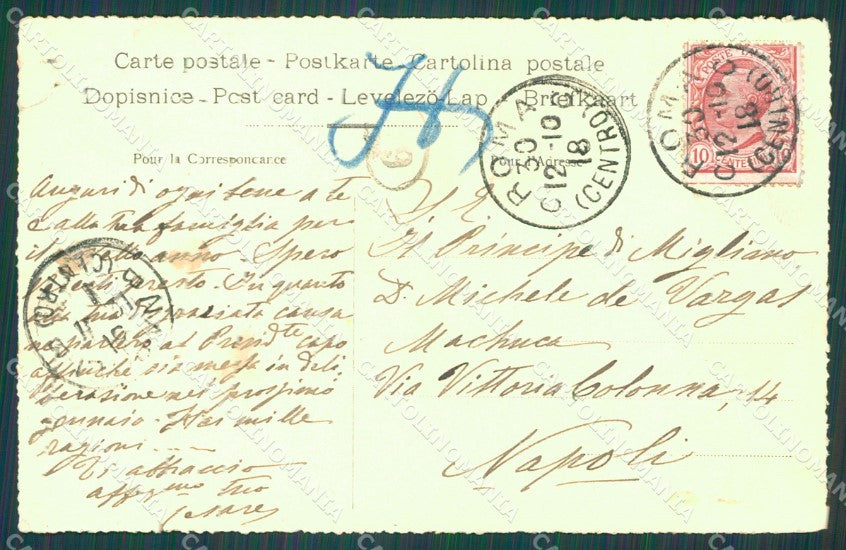 Carte postale - Postkarte - Cartolina postale
Dopisnice - Post card - Levelező-Lap - Brefkaart
Pour la Correspondance
Pour l'Adresse
Auguri di ogni bene a te
e alla tua famiglia per
il nuovo anno. Spero
presto. In quanto
alla tua disgraziata causa
ne parlero al Presidte capo
affinche sia messa in deli
berazione nel prossimo
gennaio. Hai mille
ragioni
Ti abbraccio
affezmo tuo
Cesare
S. E.
Il Principe di Migliano
D. Michele de Vargas
Machuca
Via Vittoria Colonna, 14
Napoli
ROMA (CENTRO)
30
12-10
18
ROMA (CENTRO)
30
12-10
18
POSTE
10 CENTESIMI 10
9
CARTOLINOMANIA